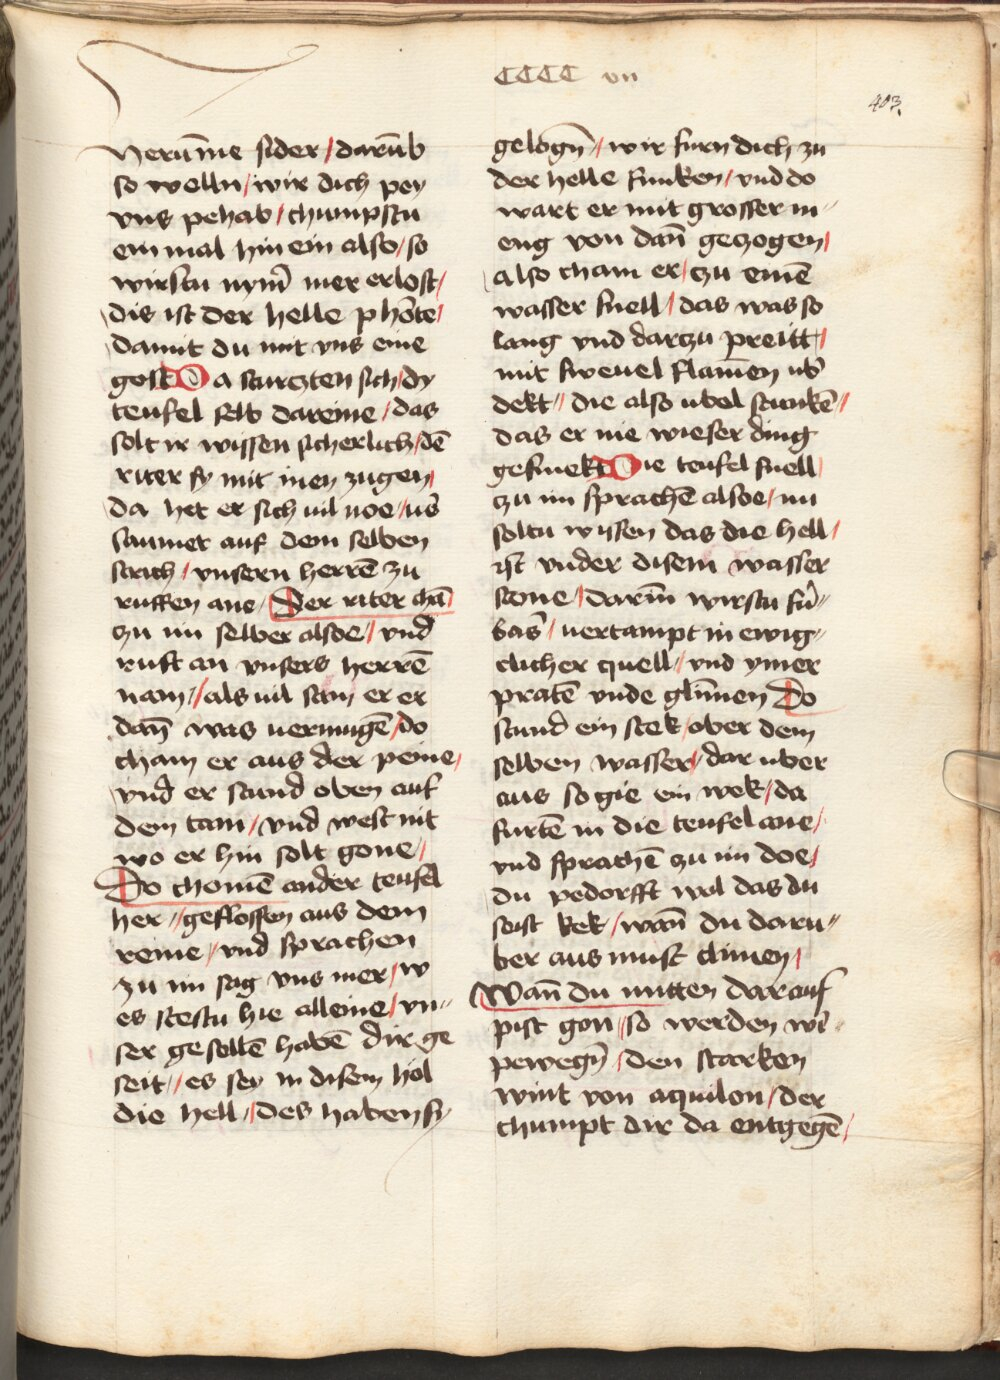 CCCC vii
403.
Verūme sider / darūb
so welln / wir dich pey
vns pehab / chumpstu
ein mal hin ein also / so
wirstu nym̄ mer erlost /
dis ist der helle phōte /
damit du mit vns eine
gost Da sturczten sich / dy
teufel selb dareine / das
solt ir wissen sicherlich / dē
riter sy mit inen zugen /
da het er sich vil noe / vn̄
saumet auf dem selben
strich / vnsern herrē zu
ruffen ane / Der riter chā /
zu im selber alsoe / vnd
ruft an vnsers herrē
nam / als vil stan er er
dan̄ was vermugē / do
cham er aus der peine /
vnd er stund oben auf
dem tam / vnd west nit
wo er hin solt gone /
Do chomē ander teufel
her / geflossen aus dem
reine / vnd sprachen
zu im sag vns mer / w
es stestu hie alleine / vn
ser gesellē habē dir ge
seit / es sey in disem hol
die hell / des haben sy
gelogn̄ / wir furn dich zu
der helle funken / vnd do
wart er mit grosser m
eng von dan̄ gezogen /
also cham er / zu einē
wasser snell / das was so
lang vnd darzu preitt /
mit sweuel flam̄en vb̄
dekt / die also vbel stunkē /
das er nie wieser ding
gesmekt Die teufel snell
zu im sprachē alsoe / nu
soltu wissen das die hell /
ist vnder disem wasser
stone / darin̄ wirstu fu̇
bas̄ / vertampt in ewig
clicher quell / vnd ymer
pratē vnde glim̄en Do
stund ein stek / ober dem
selben wasser / dar vber
aus so gie ein wek / da
furtē in die teufel ane /
vnd sprachē zu im doe /
du pedorfft wol das du
seist kek / wan̄ du daru
ber aus must climen /
Wan̄ du mitten darauf
pist gon / so werden wi
pewegn̄ / den starken
wint von aquilon / der
chumpt dir da entgegē /